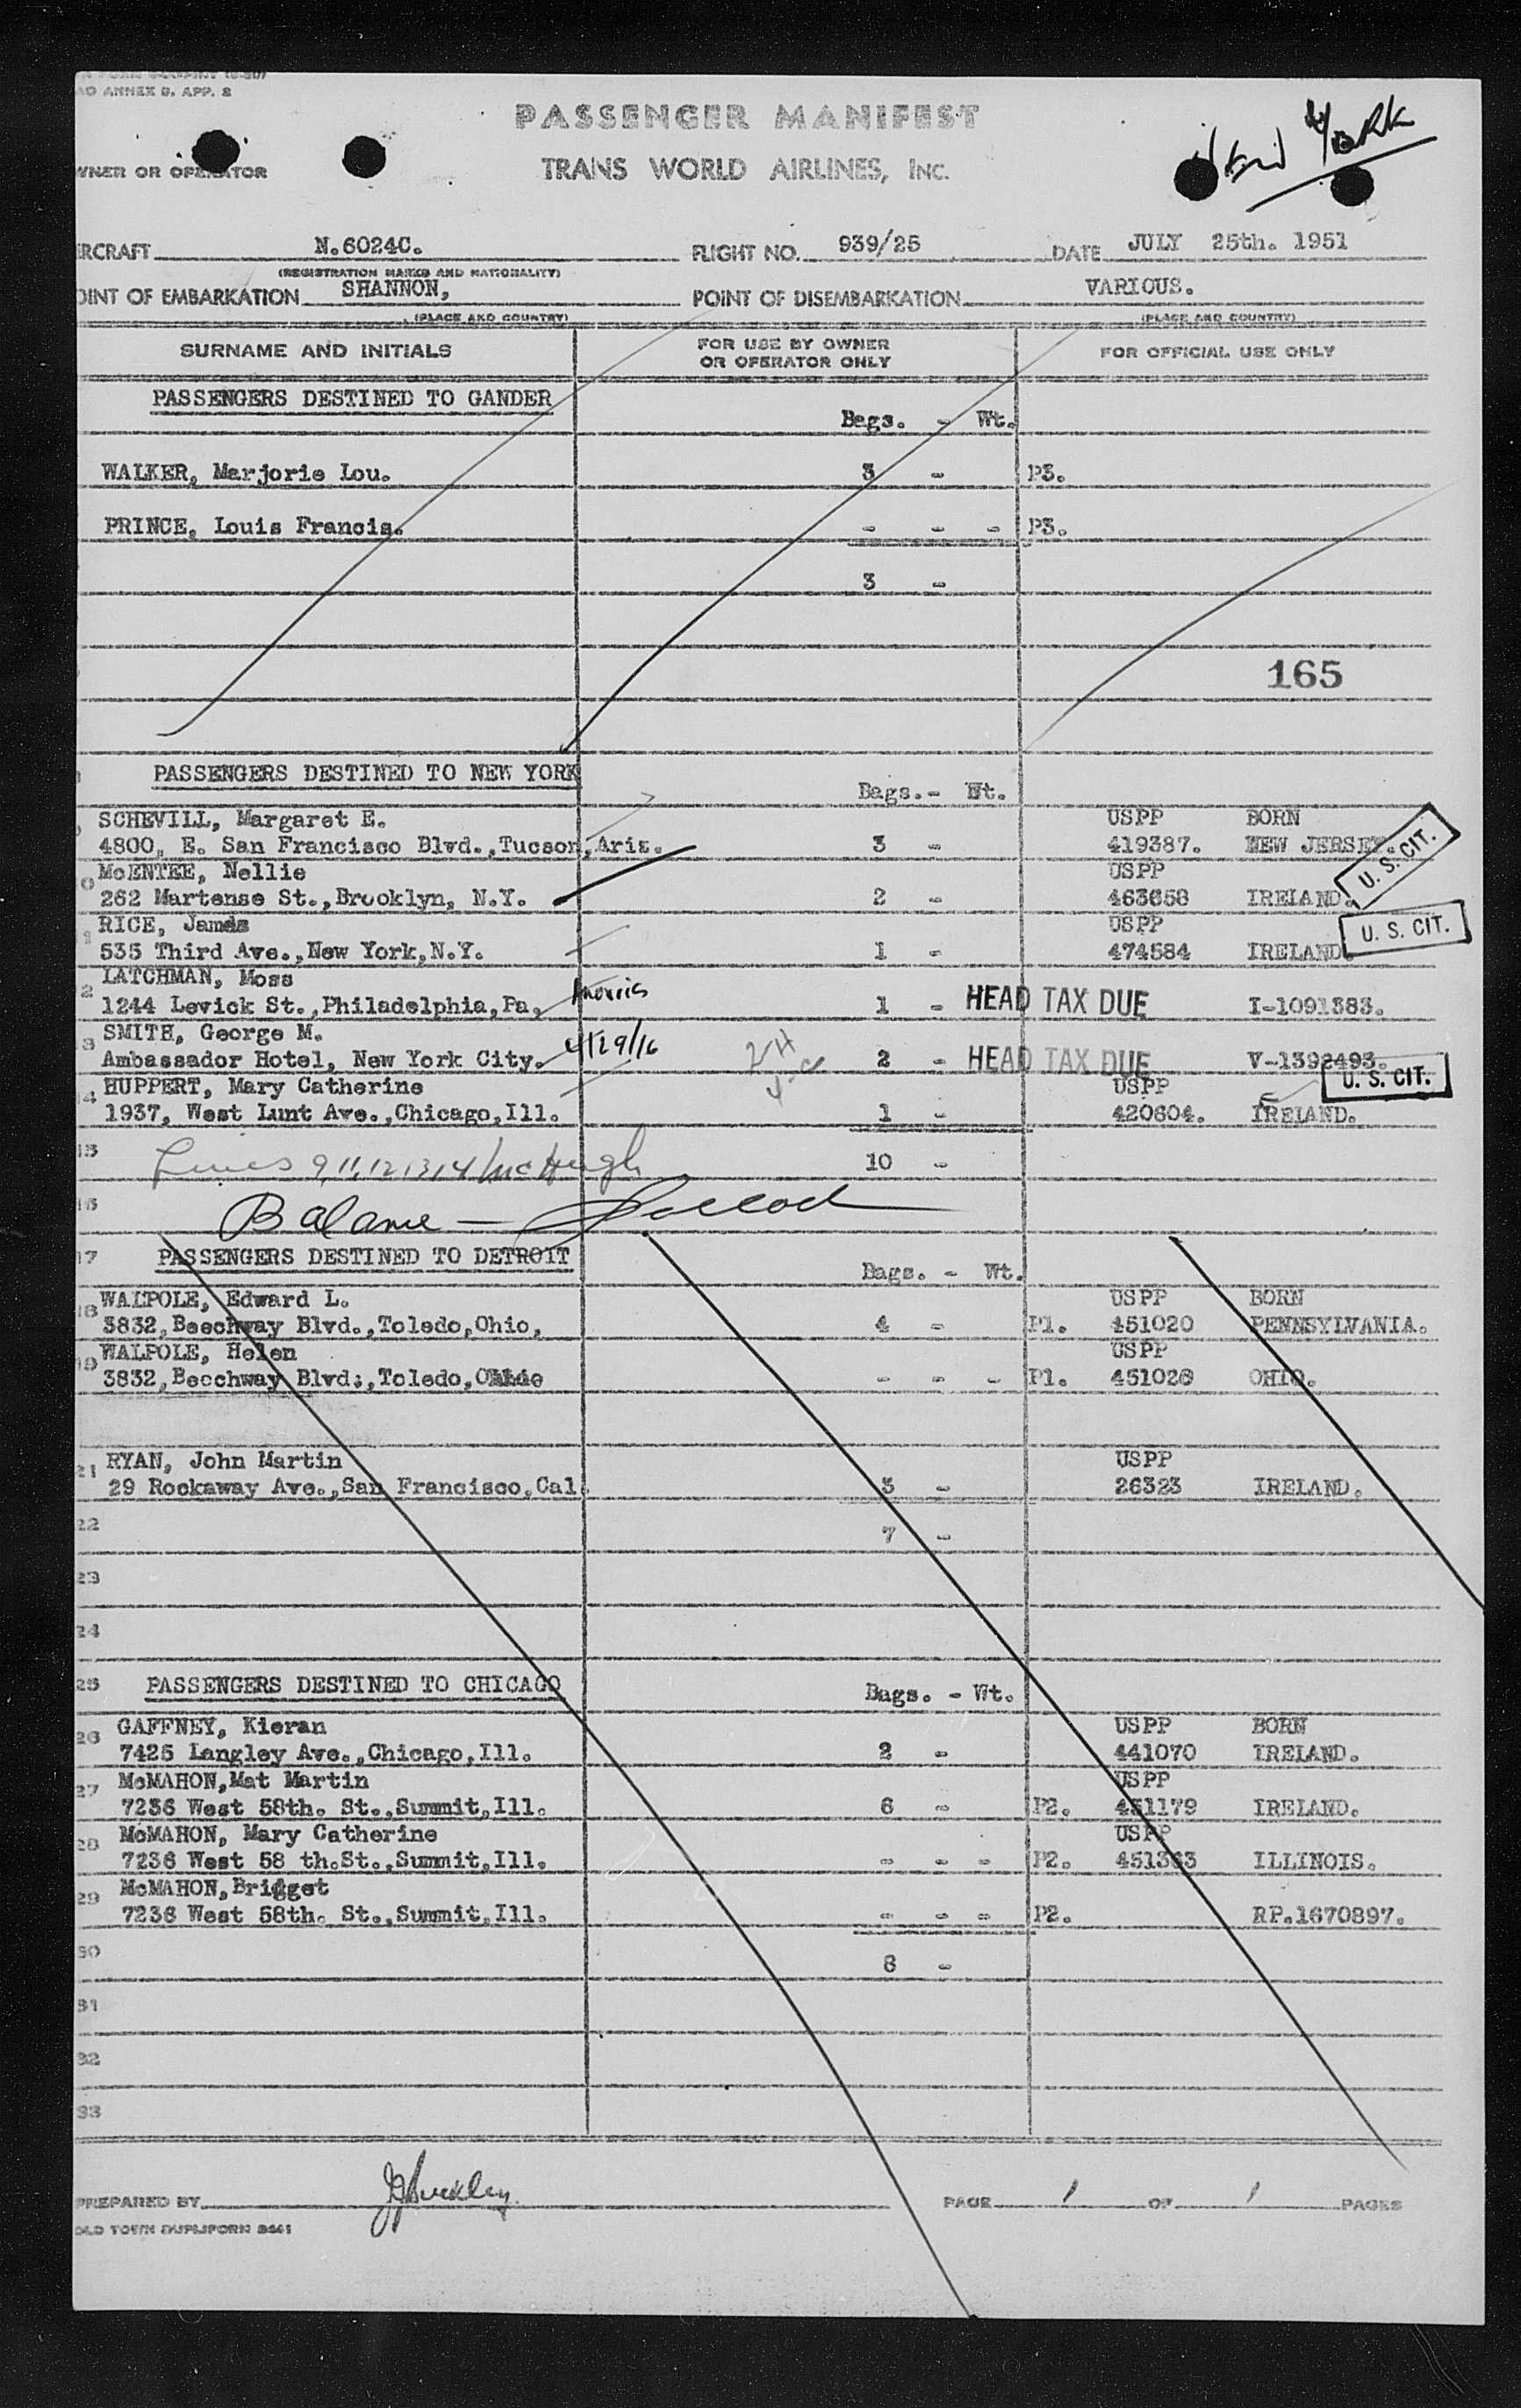 AO ANNEX 9, APP. 2
PASSENGER MANIFEST
York
WNER OR OPERATOR
TRANS WORLD AIRLINES, INC.
RCRAFT N.6024C. FLIGHT NO. 939/25 DATE JULY 25th. 1951
(REGISTRATION MARKS AND NATIONALITY)
OINT OF EMBARKATION SHANNON, POINT OF DISEMBARKATION VARIOUS.
(PLACE AND COUNTRY) (PLACE AND COUNTRY)
SURNAME AND INITIALS FOR USE BY OWNER OR OPERATOR ONLY FOR OFFICIAL USE ONLY
PASSENGERS DESTINED TO GANDER
Bags. - Wt.
WALKER, Marjorie Lou. 3 - P3.
PRINCE, Louis Francis. - - - P3.
3 -
165
PASSENGERS DESTINED TO NEW YORK
Bags.- Wt.
SCHEVILL, Margaret E. USPP BORN
4800, E. San Francisco Blvd.,Tucson,Ariz. 3 - 419387. NEW JERSEY. U. S. CIT.
McENTEE, Nellie USPP
262 Martense St.,Brooklyn, N.Y. 2 - 463658 IRELAND.
RICE, James USPP U. S. CIT.
535 Third Ave.,New York,N.Y. 1 - 474584 IRELAND.
2 LATCHMAN, Moss
1244 Levick St.,Philadelphia,Pa. Morris 1 - HEAD TAX DUE I-1091383.
3 SMITH, George M.
Ambassador Hotel, New York City. 4/29/16 2 - HEAD TAX DUE V-1392493.
4 HUPPERT, Mary Catherine USPP U. S. CIT.
1937, West Lunt Ave.,Chicago,Ill. 1 - 420604. IRELAND.
15 Lines 9,11,12,13,14/McHugh 10 -
16 Balance —
17 PASSENGERS DESTINED TO DETROIT
Bags. - Wt.
18 WALPOLE, Edward L. USPP BORN
3832,Beechway Blvd.,Toledo,Ohio, 4 - P1. 451020 PENNSYLVANIA.
19 WALPOLE, Helen USPP
3832,Beechway Blvd.,Toledo,Ohio - - - P1. 451028 OHIO.
21 RYAN, John Martin USPP
29 Rockaway Ave.,San Francisco,Cal. 3 - 26323 IRELAND.
22 7 -
23
24
25 PASSENGERS DESTINED TO CHICAGO
Bags. - Wt.
26 GAFFNEY, Kieran USPP BORN
7425 Langley Ave.,Chicago,Ill. 2 - 441070 IRELAND.
27 McMAHON,Mat Martin USPP
7236 West 58th. St.,Summit,Ill. 6 - P2. 451179 IRELAND.
28 McMAHON, Mary Catherine USPP
7236 West 58 th.St.,Summit,Ill. - - - P2. 451363 ILLINOIS.
29 McMAHON,Bridget
7236 West 58th. St.,Summit,Ill. - - - P2. RP.1670897.
30 8 -
31
32
33
PREPARED BY JJBuckley PAGE 1 OF 1 PAGES
OLD TOWN DUPLIFORM 3441